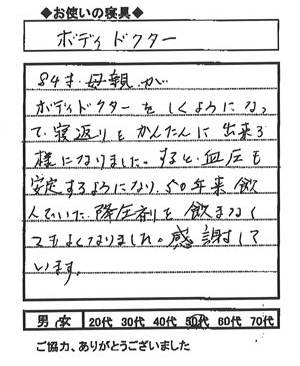 ◆お使いの寝具◆
ボディドクター
84才、母親が
ボディドクターをしくようになっ
て、寝返りもかんたんに出来る
様になりました。すると、血圧も
安定するようになり、50年来飲
んでいた、降圧剤も飲まなく
てもよくなりました。感謝して
います。
男 女 20代 30代 40代 50代 60代 70代
ご協力、ありがとうございました